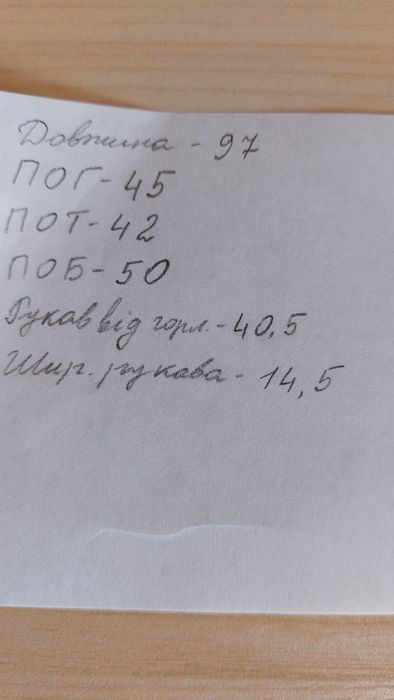 Довжина - 97
ПОГ - 45
ПОТ - 42
ПОБ - 50
Рукав від горл. - 40,5
Шир. рукава - 14,5